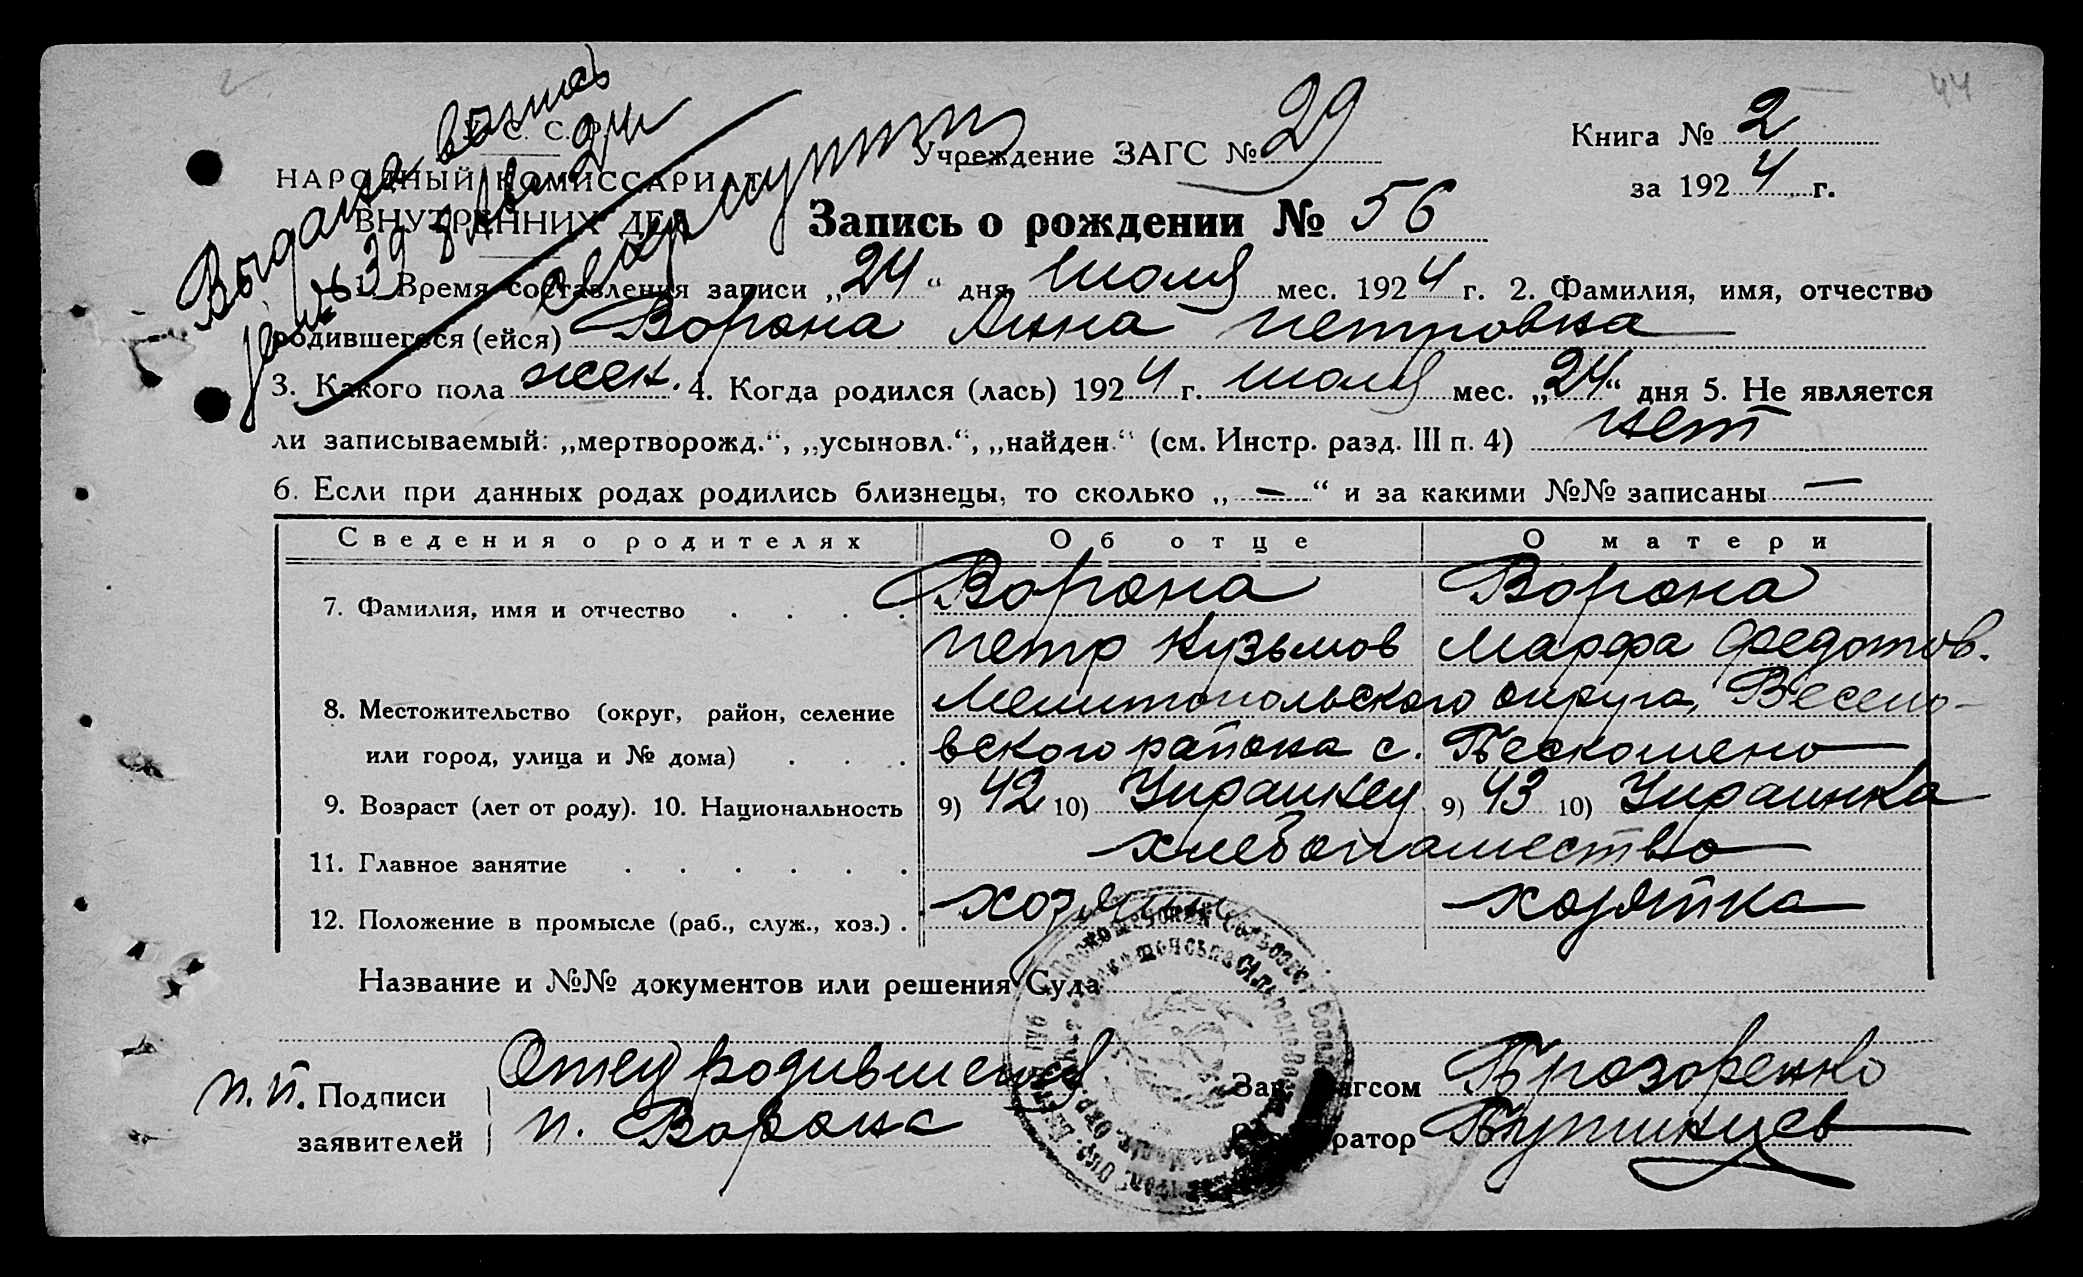 44
У. С. С. Р.
НАРОДНЫЙ КОМИССАРИАТ
ВНУТРЕННИХ ДЕЛ
Выдана
Учреждение ЗАГС № 29
Книга № 2
за 1924 г.
Запись о рождении № 56
1. Время составления записи „24“ дня Июля мес. 1924 г. 2. Фамилия, имя, отчество
родившегося (ейся) Ворона Анна Петровна
3. Какого пола жен. 4. Когда родился (лась) 1924 г. июля мес. „24“ дня 5. Не является
ли записываемый: „мертворожд.“, „усыновл.“, „найден.“ (см. Инстр. разд. III п. 4) нет
6. Если при данных родах родились близнецы, то сколько „—“ и за какими №№ записаны —
Сведения о родителях Об отце О матери
7. Фамилия, имя и отчество . . . . Ворона Ворона
Петр Кузьмов Марфа Федотов.
8. Местожительство (округ, район, селение Мелитопольского округа, Весело-
или город, улица и № дома) . . . вского района с.
9. Возраст (лет от роду). 10. Национальность 9) 42 10) Украинец 9) 43 10) Украинка
11. Главное занятие . . . . . . хлебопашество
12. Положение в промысле (раб., служ., хоз.) . хозяин хозяйка
Название и №№ документов или решения Суда
п. п. Подписи заявителей
Отец родившейся
п. Ворона
Зав. Загсом
Регистратор